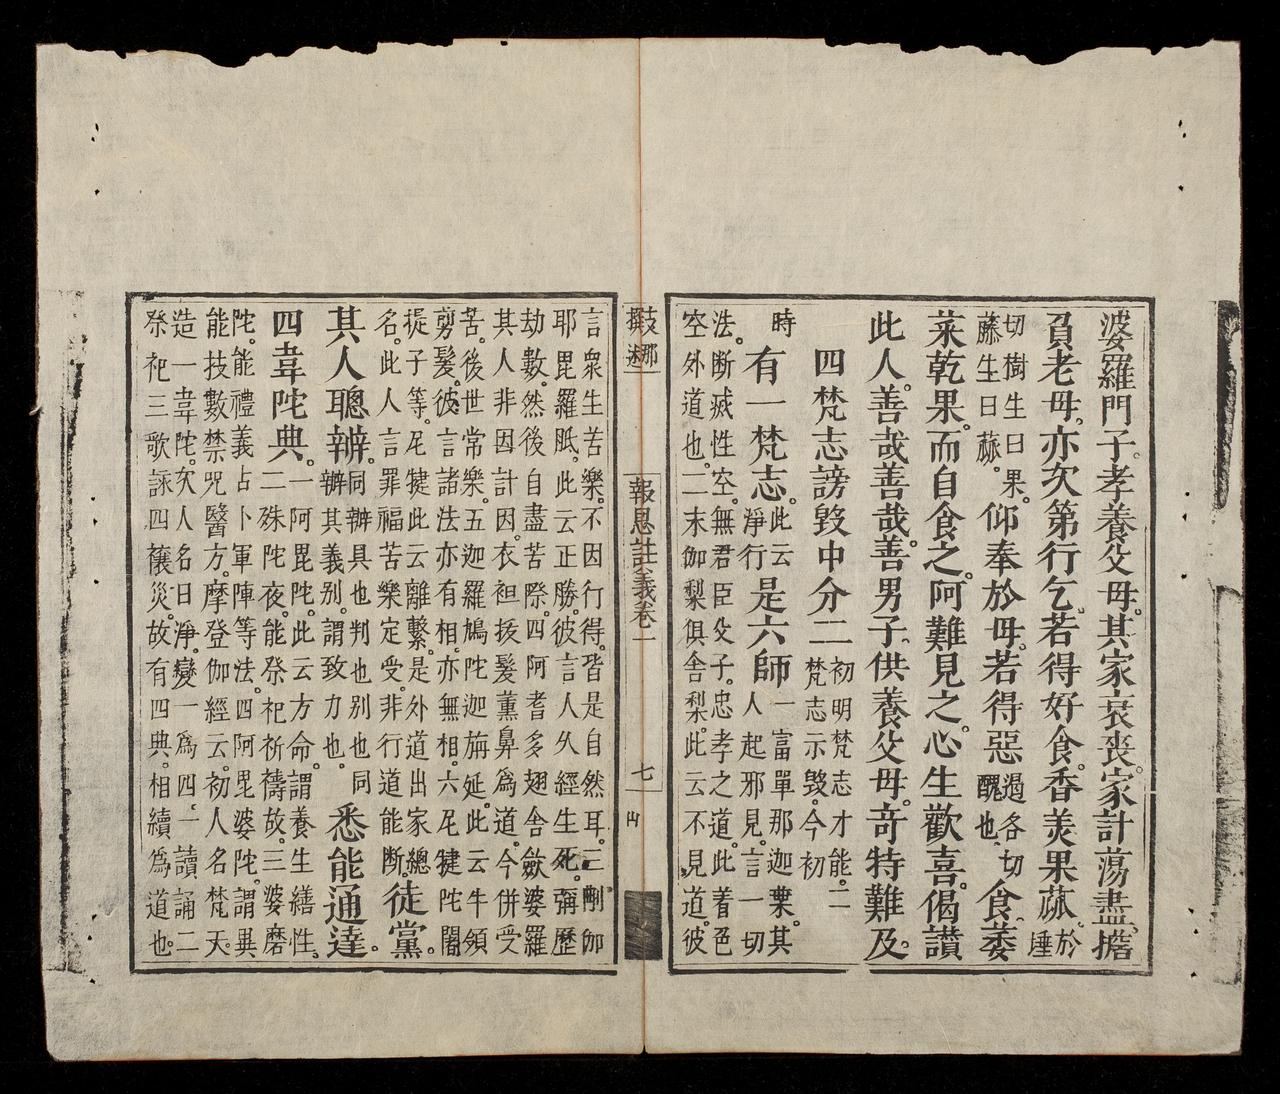 婆羅門子。孝養父母。其家衰喪。家計蕩盡。擔
負老母。亦次第行乞。若得好食。香美果蓏。於腄
切樹生曰果。藤生曰蓏。仰奉於母。若得惡遏各切醜也。食。萎
菜乾果。而自食之。阿難見之。心生歡喜。偈讚
此人。善哉善哉。善男子。供養父母。奇特難及。
四梵志謗毀中分二初明梵志才能。二梵志示毀。今初
時有一梵志。此云淨行是六師一富單那迦葉。其人起邪見。言一切
法。斷滅性空。無君臣父子。忠孝之道。此著邑
空外道也。二末伽梨俱舍梨。此云不見道。彼
支那撰述
報恩註義卷一
七
言衆生苦樂。不因行得。皆是自然耳。三刪伽
耶毘羅胝。此云正勝。彼言人久經生死。彌歷
劫數。然後自盡苦際。四阿耆多翅舍歛婆羅
其人非因計因。衣袒拔髮薰鼻爲道。今併受
苦。後世常樂。五迦羅鳩陀迦旃延。此云牛領
剪髮。彼言諸法亦有相。亦無相。六尼犍陀闍
提子等。尼犍此云離繫。是外道出家總
名。此人言罪福苦樂定受。非行道能斷。徒黨。
其人聰辯。同辦具也判也別也同辦其義別。謂致力也。悉能通達。
四韋陀典。一阿毘陀。此云方命。謂養生繕性。二殊陀夜。能祭祀祈禱故。三婆磨
陀。能禮義占卜軍陣等法。四阿毘婆陀。謂異
能技數禁咒醫方。摩登伽經云。初人名梵天。
造一韋陀。次人名曰淨。變一爲四。一讀誦二
祭祀三歌詠四禳災。故有四典。相續爲道也。